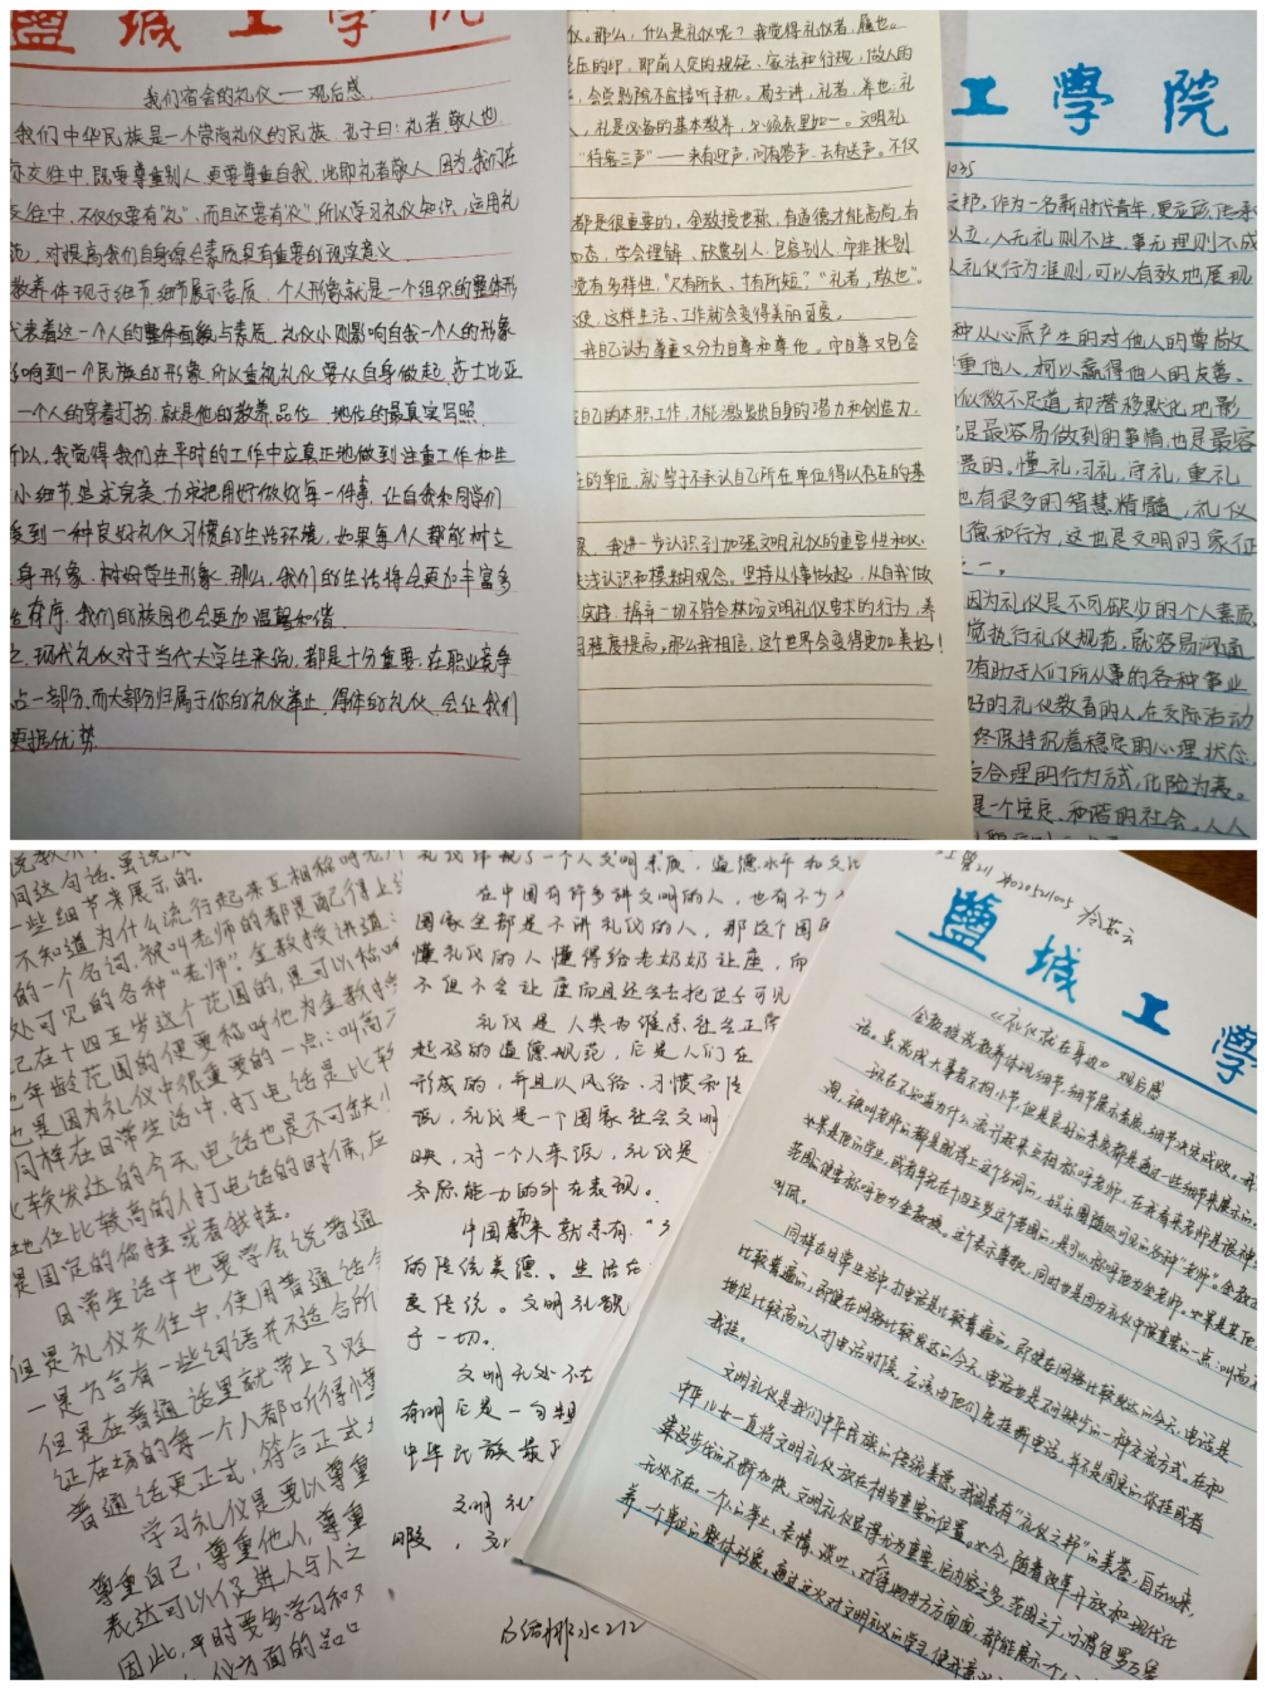 盐城工学院
我们宿舍的礼仪——观后感
我们中华民族是一个崇尚礼仪的民族.孔子曰:礼者.敬人也
交往中.既要尊重别人.更要尊重自我.此即礼者敬人.因为.我们在
往中.不仅仅要有"礼".而且还要有"仪".所以学习礼仪知识.运用礼
对提高我们自身综合素质具有重要的现实意义
教养体现于细节.细节展示素质.个人形象就是一个组织的整体形
代表着这一个人的整体面貌与素质.礼仪小则影响自我一个人的形象
响到一个民族的形象.所以重视礼仪要从自身做起.莎士比亚
一个人的穿着打扮.就是他的教养.品位.地位的最真实写照.
所以.我觉得我们在平时的工作中应真正地做到注重工作和生
小细节.追求完美.力求把用好做好每一件事.让自我和同学们
受到一种良好礼仪习惯的生活环境.如果每个人都能树立
身形象.树好学生形象.那么.我们的生活将会更加丰富多
有序.我们的校园也会更加温馨和谐.
现代礼仪对于当代大学生来说.都是十分重要.在职业竞争
占一部分.而大部分归属于你的礼仪举止.得体的礼仪.会让我们
更据优势.
仪。那么,什么是礼仪呢?我觉得礼仪者,履也。
压的印,即前人定的规矩、家法和行规,做人的
会堂影院不应接听手机。荀子讲,礼者,养也;礼
礼是必备的基本教养,必须表里如一。文明礼
"待客三声"——来有迎声、问有答声、去有送声。不仅
都是很重要的。金教授也称,有道德才能高尚,有
态,学会理解、欣赏别人,包容别人,而非挑剔
觉有多样性,"尺有所长、寸有所短","礼者,敬也"。
使,这样生活、工作就会变得美丽可爱。
我自己认为尊重又分为自尊和尊他。而自尊又包含
自己的本职工作,才能激发出自身的潜力和创造力.
的单位,就等于不承认自己所在单位得以存在的基
我进一步认识到加强文明礼仪的重要性和必
浅认识和模糊观念。坚持从小事做起,从自我做
实践,摒弃一切不符合林场文明礼仪要求的行为,养
程度提高。那么我相信,这个世界会变得更加美好!
工学院
1035
之邦,作为一名新时代青年,更应该传承
以立,人无礼则不生,事无理则不成
礼仪行为准则,可以有效地展现
种从心底产生的对他人的尊敬
重他人,柯以赢得他人的友善、
似微不足道,却潜移默化地影
是最容易做到的事情,也是最容
贵的。懂礼,习礼,守礼,重礼
也有很多的智慧精髓,礼仪
德和行为,这也是文明的象征
之一。
因为礼仪是不可缺少的个人素质
觉执行礼仪规范,就容易沟通
有助于人们所从事的各种事业
好的礼仪教育的人,在交际活动
终保持沉着稳定的心理状态,
合理的行为方式,化险为夷。
是一个安定、和谐的社会。人人
同这句话.虽说成
一些细节来展示的.
不知道为什么流行起来互相称呼老师
的一个名词,被叫老师的都是配得上
处可见的各种"老师".金教授讲道:
己在十四五岁这个范围的,是可以称呼
年龄范围的便要称呼他为金教授
也是因为礼仪中很重要的一点:叫高
同样在日常生活中,打电话是比较
比较发达的今天,电话也是不可缺少
地位比较高的人打电话的时候,应
是固定的你挂或者我挂。
日常生活中也要学会说普通
但是礼仪交往中,使用普通话
一是方言有一些词语并不适合所
但是在普通话里就带上了贬
证在场的每一个人都听得懂
普通话更正式,符合正式
学习礼仪是要以尊重
尊重自己,尊重他人,尊重
表达可以促进人与人之
因此,平时要多学习和
仪方面的品
礼仪体现了一个人文明素质,道德水平和文化
在中国有许多讲文明的人,也有不少
国家全都是不讲礼仪的人,那这个国
懂礼仪的人懂得给老奶奶让座,而
不但不会让座而且还会去抢位子可见
礼仪是人类为维系社会正常
起码的道德规范,它是人们在
形成的,并且以风俗、习惯和传
说,礼仪是一个国家社会文明
映,对一个人来说,礼仪是
交际能力的外在表现。
中国历来就素有"
的传统美德。生活在
良传统。文明礼貌
于一切。
文明无处不在
有明它是一句
中华民族最
文明礼
暇,
盐城工学
《礼仪就在身边》观后感
金教授说教养体现细节,细节展示素质,细节决定成败。
话。虽说成大事者不拘小节,但是良好的素质都是通过一些细节来展示的。
现在不知道为什么,流行起来互相称呼老师,在我看来老师是很神圣
词,被叫老师的都是配得上这个名词的,娱乐圈随处可见的各种"老师"。金教
如果是他的学生,或者年纪在十四五岁这个范围的,是可以称呼他为金老师。如果是其他
范围的便要称呼他为金教授。这个表示尊敬,同时也是因为礼仪中很重要的一点:叫高不
叫低。
同样在日常生活中,打电话是比较普遍的,即使在网络比较发达的今天,电话是
比较普遍的,即使在网络比较发达的今天,电话也是不可缺少的一种交流方式。在和
地位比较高的人打电话时候,应该由他们先挂断电话,并不是固定的你挂或者
我挂。
文明礼仪是我们中华民族的传统美德,我国素有"礼仪之邦"的美誉,自古以来,
中华儿女一直将文明礼仪放在相当重要的位置。如今,随着改革开放和现代化
建设步伐的不断加快,文明礼仪显得尤为重要,它内容之多,范围之广,可谓包罗万象
无处不在。一个人的举止、表情、谈吐、对待人物等方方面面,都能展示一个人
养,一个单位的整体形象。通过这次对文明礼仪的学习,使我意识